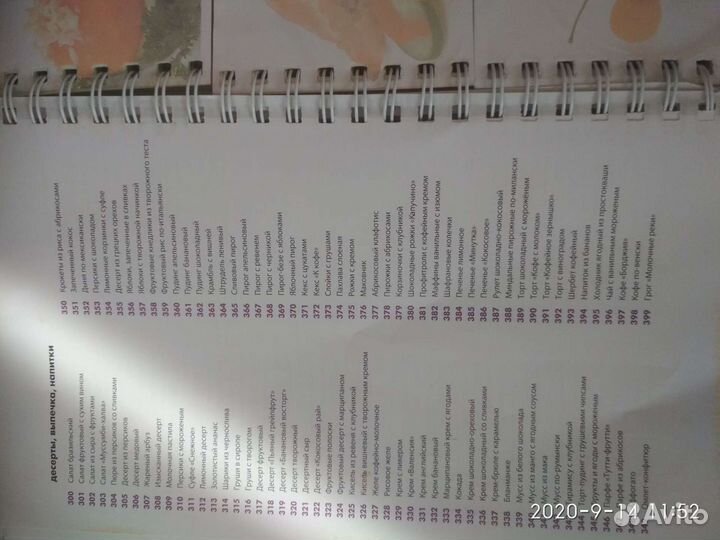 десерты, выпечка, напитки
300 Салат бразильский
301 Салат фруктовый с сухим вином
302 Салат из сыра с фруктами
303 Салат «Мусурумбе-халва»
304 Пюре из персиков со сливками
305 Десерт из персиков
306 Десерт медовый
307 Жареный арбуз
308 Изысканный десерт
309 Молочная пастила
310 Персики с мороженым
311 Суфле «Снежное»
312 Лимонный десерт
313 Золотистый ананас
314 Шарики из чернослива
315 Груши в сиропе
316 Груши с творогом
317 Десерт фруктовый
318 Десерт «Пьяный грейпфрут»
319 Десерт «Банановый восторг»
320 Десерт творожный
321 Десертный сыр
322 Десерт «Кокосовый рай»
323 Фруктовые полоски
324 Фруктовый десерт с марципаном
325 Кисель из ревеня с клубникой
326 Желе вишневый с творожным кремом
327 Желе кофейно-молочное
328 Рисовое желе
329 Крем с ликером
330 Крем «Валенсия»
331 Крем английский
332 Крем банановый
333 Марципановый крем с ягодами
334 Кокада
335 Крем шоколадно-ореховый
336 Крем шоколадный со сливками
337 Крем-брюле с карамелью
338 Бланманже
339 Мусс из белого шоколада
34 с ягодным соусом
34 Мусс из мака
34 Мусс по-румынски
34 Тирамису с клубникой
344 Торт-пудинг с грушевыми чипсами
345 Фрукты и ягоды с мороженым
346 Парфе «Тутти-фрутти»
34 Парфе из абрикосов
34 Аффогато
34 -конфитюр
350 Крокеты из риса с абрикосами
351 Запеченный кокос
352 Дыня по-мексикански
353 Персики с шоколадом
354 Лимонные корзинки с суфле
355 Десерт из грецких орехов
356 Яблоки, запеченные в сливках
357 Яблоки с творожной начинкой
358 Фруктовые ежедневики из творожного теста
359 Фруктовый рис по-итальянски
360 Пудинг апельсиновый
361 Пудинг банановый
362 Пудинг шоколадный
363 Крамбль с вишней
364 Штрудель ленивый
365 Сливовый пирог
366 Пирог апельсиновый
367 Пирог с ревенем
368 Пирог с черникой
369 Пирог-безе с яблоками
370 Яблочный пирог
371 Кекс с цукатами
372 Кекс «К кофе»
373 Слойки с грушами
374 Пахлава слоеная
375 Рожки с кремом
376
377 Абрикосовый клафотис
378 Пирожки с абрикосами
379 Корзиночки с клубникой
380 Шоколадные рожки «Капучино»
381 Профитроли с кофейным кремом
382 Маффины ванильные с изюмом
383 Шафрановые колечки
384 Печенье лимонное
385 Печенье «Минутка»
386 Печенье «Кокосовое»
387 Рулет шоколадно-кокосовый
388 Миндальные пирожные по-милански
389 Торт шоколадный с мороженым
390 Торт «Кофе с молоком»
391 Торт «Кофейное зернышко»
392 Торт с виноградом
393 Щербет кофейный
394 Напиток из бананов
395 Холодник ягодный из простокваши
396 Чай с ванильным мороженым
397 Кофе «Борджиа»
398 Кофе по-венски
399 Грог «Молочные реки»
2020-9-14 11:52
Avito